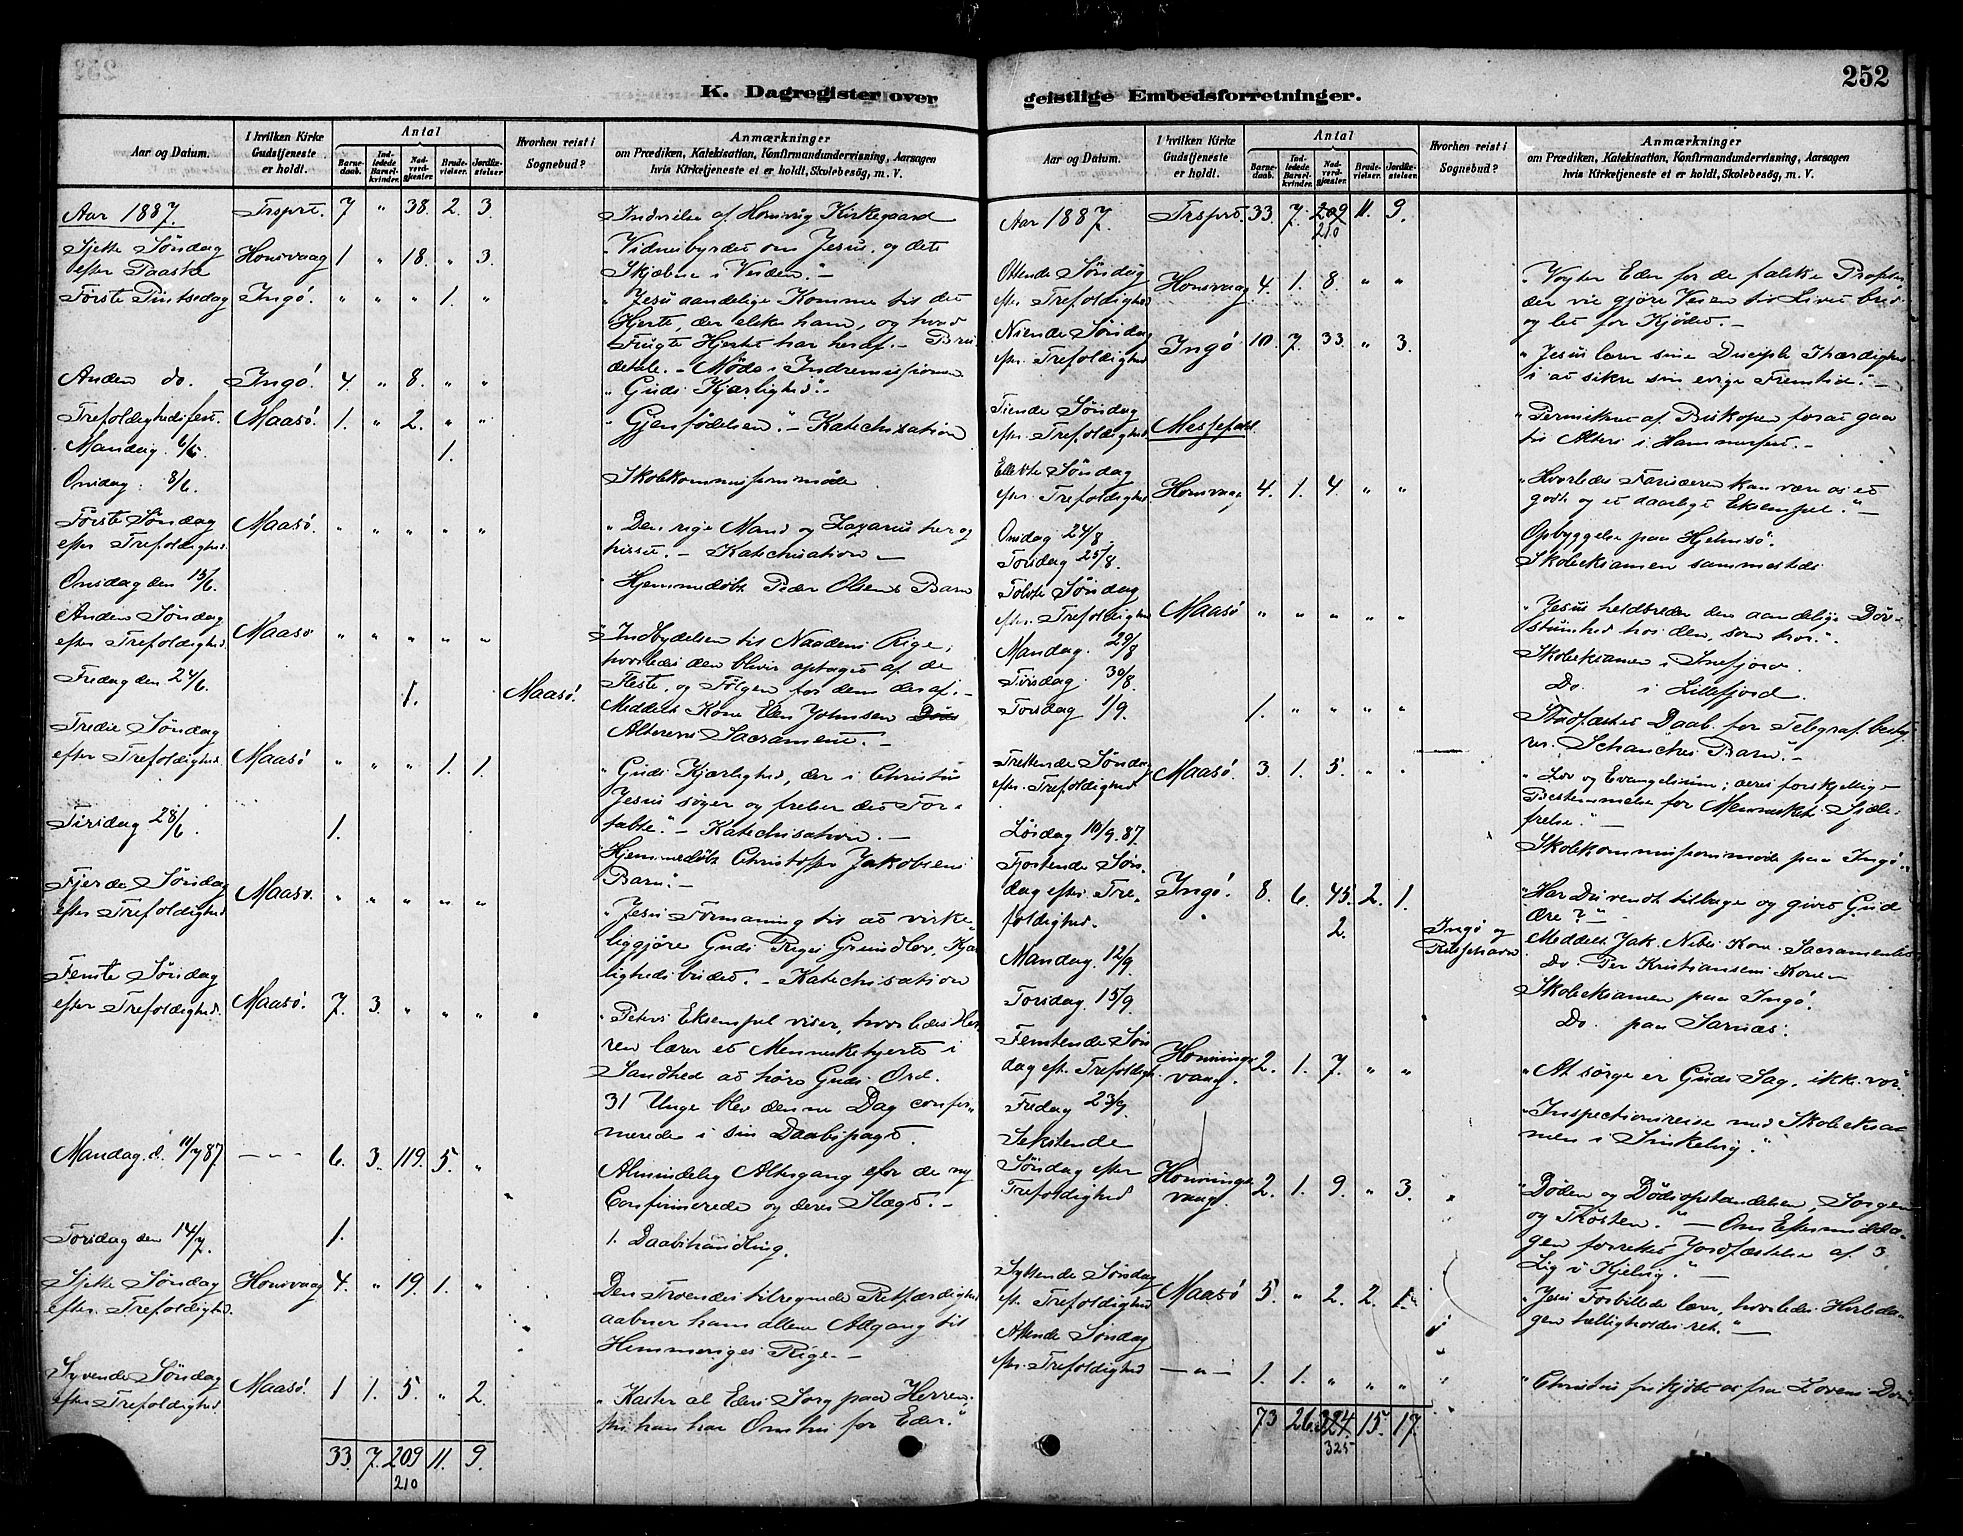 252
K. Dagregister over
geistlige Embedsforretninger.
Aar og Datum.
I hvilken Kirke Gudstjeneste er holdt.
Antal
Barnedaab.
Indledede Barselkvinder.
Nadverdgjæster.
Brudevielser.
Jordfæstelser
Hvorhen reist i Sognebud?
Anmærkninger
om Prædiken, Katekisation, Konfirmandundervisning, Aarsagen
hvis Kirketjeneste ei er holdt, Skolebesög, m. V.
Aar 1887. Trsprt. 7 " 38. 2. 3. Indvielse af Honsvaag Kirkegaard
Sjette Søndag efter Paaske Honsvaag 1 " 18. " 3. "Vidnesbyrdet om Jesus, og dets
Skjæbne i Verden."
Første Pintsedag Ingö. " " " 1. " "Jesu aandelige Komme til det
Hjerte, der elsker ham, og hvad
Frugt Hjertet har heraf. - Bru
detale. - Møde i Indremissionen
Anden do. Ingö. 4. " 8. " " "Guds Kjærlighed."
Trefoldighedsfest. Maasö. 1. " 2. " " "Gjenfødelsen." - Katechisation
Mandag 6/6 1.
Onsdag 8/6. Skolekommissionsmøde
Første Søndag efter Trefoldighed. Maasö. " " " " " "Den rige Mand og Lazarus her og
hisset. - Katechisation -
Onsdag den 15/6 Hjemmedøbt Peder Olsens Barn
Anden Søndag efter Trefoldighed. Maasö " " " " " "Indbydelsen til Naadens Rige,
hvorledes den bliver optaget af de
Fleste, og Følgen for dem deraf. -
Fredag den 24/6. 1. Maasö. Meddelt Kone Elen Johnsen
Alterens Sacrament. -
Tredie Søndag efter Trefoldighed. Maasö " " " 1. 1. "Guds Kjærlighed, der i Christus
Jesus søger og frelser det For-
tabte." - Katechisation. -
Tirsdag 28/6. 1. Hjemmedøbt Christoffer Jakobsens
Barn. -
Fjerde Søndag efter Trefoldighed Maasö. " " " " " "Jesu Formaning til at virke-
liggjøre Guds Riges Grundlov, Kjær
lighedsbudet. - Katechisation
Femte Søndag efter Trefoldighed. Maasö. 7. 3. " " " "Peters Eksempel viser, hvorledes Her
ren lærer et Menneskehjerte i
Sandhed at høre Guds Ord.
31 Unge blev denne Dag confir-
merede i sin Daabspagt.
Mandag d. 11/7 87. - " - 6. 3. 119. 5. " Almindelig Altergang efter de ny
Confirmerede og deres Slægt. -
Torsdag den 14/7. 1. 1. Daabshandling.
Sjette Søndag efter Trefoldighed. Honsvaag 4. " 19. 1. " Den Troendes tilregnede Retfærdighed
aabner ham allene Adgang til
Himmeriges Rige. -
Syvende Søndag efter Trefoldighed Maasö. 1 1. 5. " 2. "Kaster al Eders Sorg paa Herren,
thi han har Omhu for Eder."
33. 7. 209 11. 9.
210
Aar og Datum.
I hvilken Kirke Gudstjeneste er holdt.
Antal
Barnedaab.
Indledede Barselkvinder.
Nadverdgjæster.
Brudevielser.
Jordfæstelser.
Hvorhen reist i Sognebud?
Anmærkninger
om Prædiken, Katekisation, Konfirmandundervisning, Aarsagen
hvis Kirketjeneste et er holdt, Skolebesög, m. V.
Aar 1887. Trsprt. 33. 7. 209 11. 9.
210
Ottende Søndag efter Trefoldighed Honsvaag 4. 1. 8. " " "Vogter Eder for de falske Profeter
der vil gjøre Veien til Livet bred
og let for Kjødet. -
Niende Søndag efter Trefoldighed Ingö 10. 7. 33. " 3. "Jesus lærer sine Disciple Ihærdighed
i at sikre sin evige Fremtid." -
Tiende Søndag efter Trefoldighed Messefald. "Permitteret af Biskopen forat gaa
til Alters i Hammerfest. -
Ellevte Søndag efter Trefoldighed Honsvaag 4. 1. 4. " " "Hvorledes Farisæeren kan være os et
godt og et daarligt Eksempel." -
Onsdag 24/8. Opbyggelse paa Hjelmsö.
Torsdag 25/8. Skoleeksamen sammesteds
Tolvte Søndag efter Trefoldighed Maasö " " " " " "Jesus helbreder den aandelige Døv-
stumhed hos den, som tror."
Mandag. 29/8 Skoleeksamen i Snefjord.
Tirsdag. 30/8. Do. i Lillefjord.
Torsdag 1/9. 1. " " " " Stadfæstet Daab for Telegrafbesty
rer Schanches Barn. -
Trettende Søndag efter Trefoldighed Maasö. 3. 1. 5. " " "Lov og Evangelium; deres forskjellige
Bestemmelse for Menneskets Sjæle-
frelse." -
Lørsdag 10/9. 87. Skolekommissionsmøde paa Ingö.
Fjortende Søndag efter Trefoldighed. Ingö. 8. 6. 45. 2. 1. "Har Du vendt tilbage og givet Gud
Ære?" -
2. Ingö og Meddelt Jak. Kone Sacramentet
Mandag. 12/9 Do. Per Kristiansens Kone -
Torsdag. 15/9 Skoleeksamen paa Ingö.
Do. paa Sarnæs.
Femtende Søndag eft. Trefoldigh. Honningsvaag. 2. 1. 7. " " "At sørge er Guds Sag, ikke vor."
Fredag 23/9. "Inspectionsreise med Skoleeksa-
men i
Sekstende Søndag efter Trefoldighed Honningsvaag. 2. 1. 9. " 3. "Døden og Dødsopstandelsen, Sorgen
og Trøsten." - Om Eftermidda-
gen forrettet Jordfæstelse af 3
Lig i Kjelvig." -
Syttende Søndag eft. Trefoldighed Maasö 5. " 2. 2. 1. "Jesu Forbillede lærer, hvorledes Hvileda-
gen helligholdes ret." -
Attende Søndag efter Trefoldighed - " - 1. 1. " " " "Christus frikjøbte os fra Lovens Dom
73 26. 324. 15. 17.
325